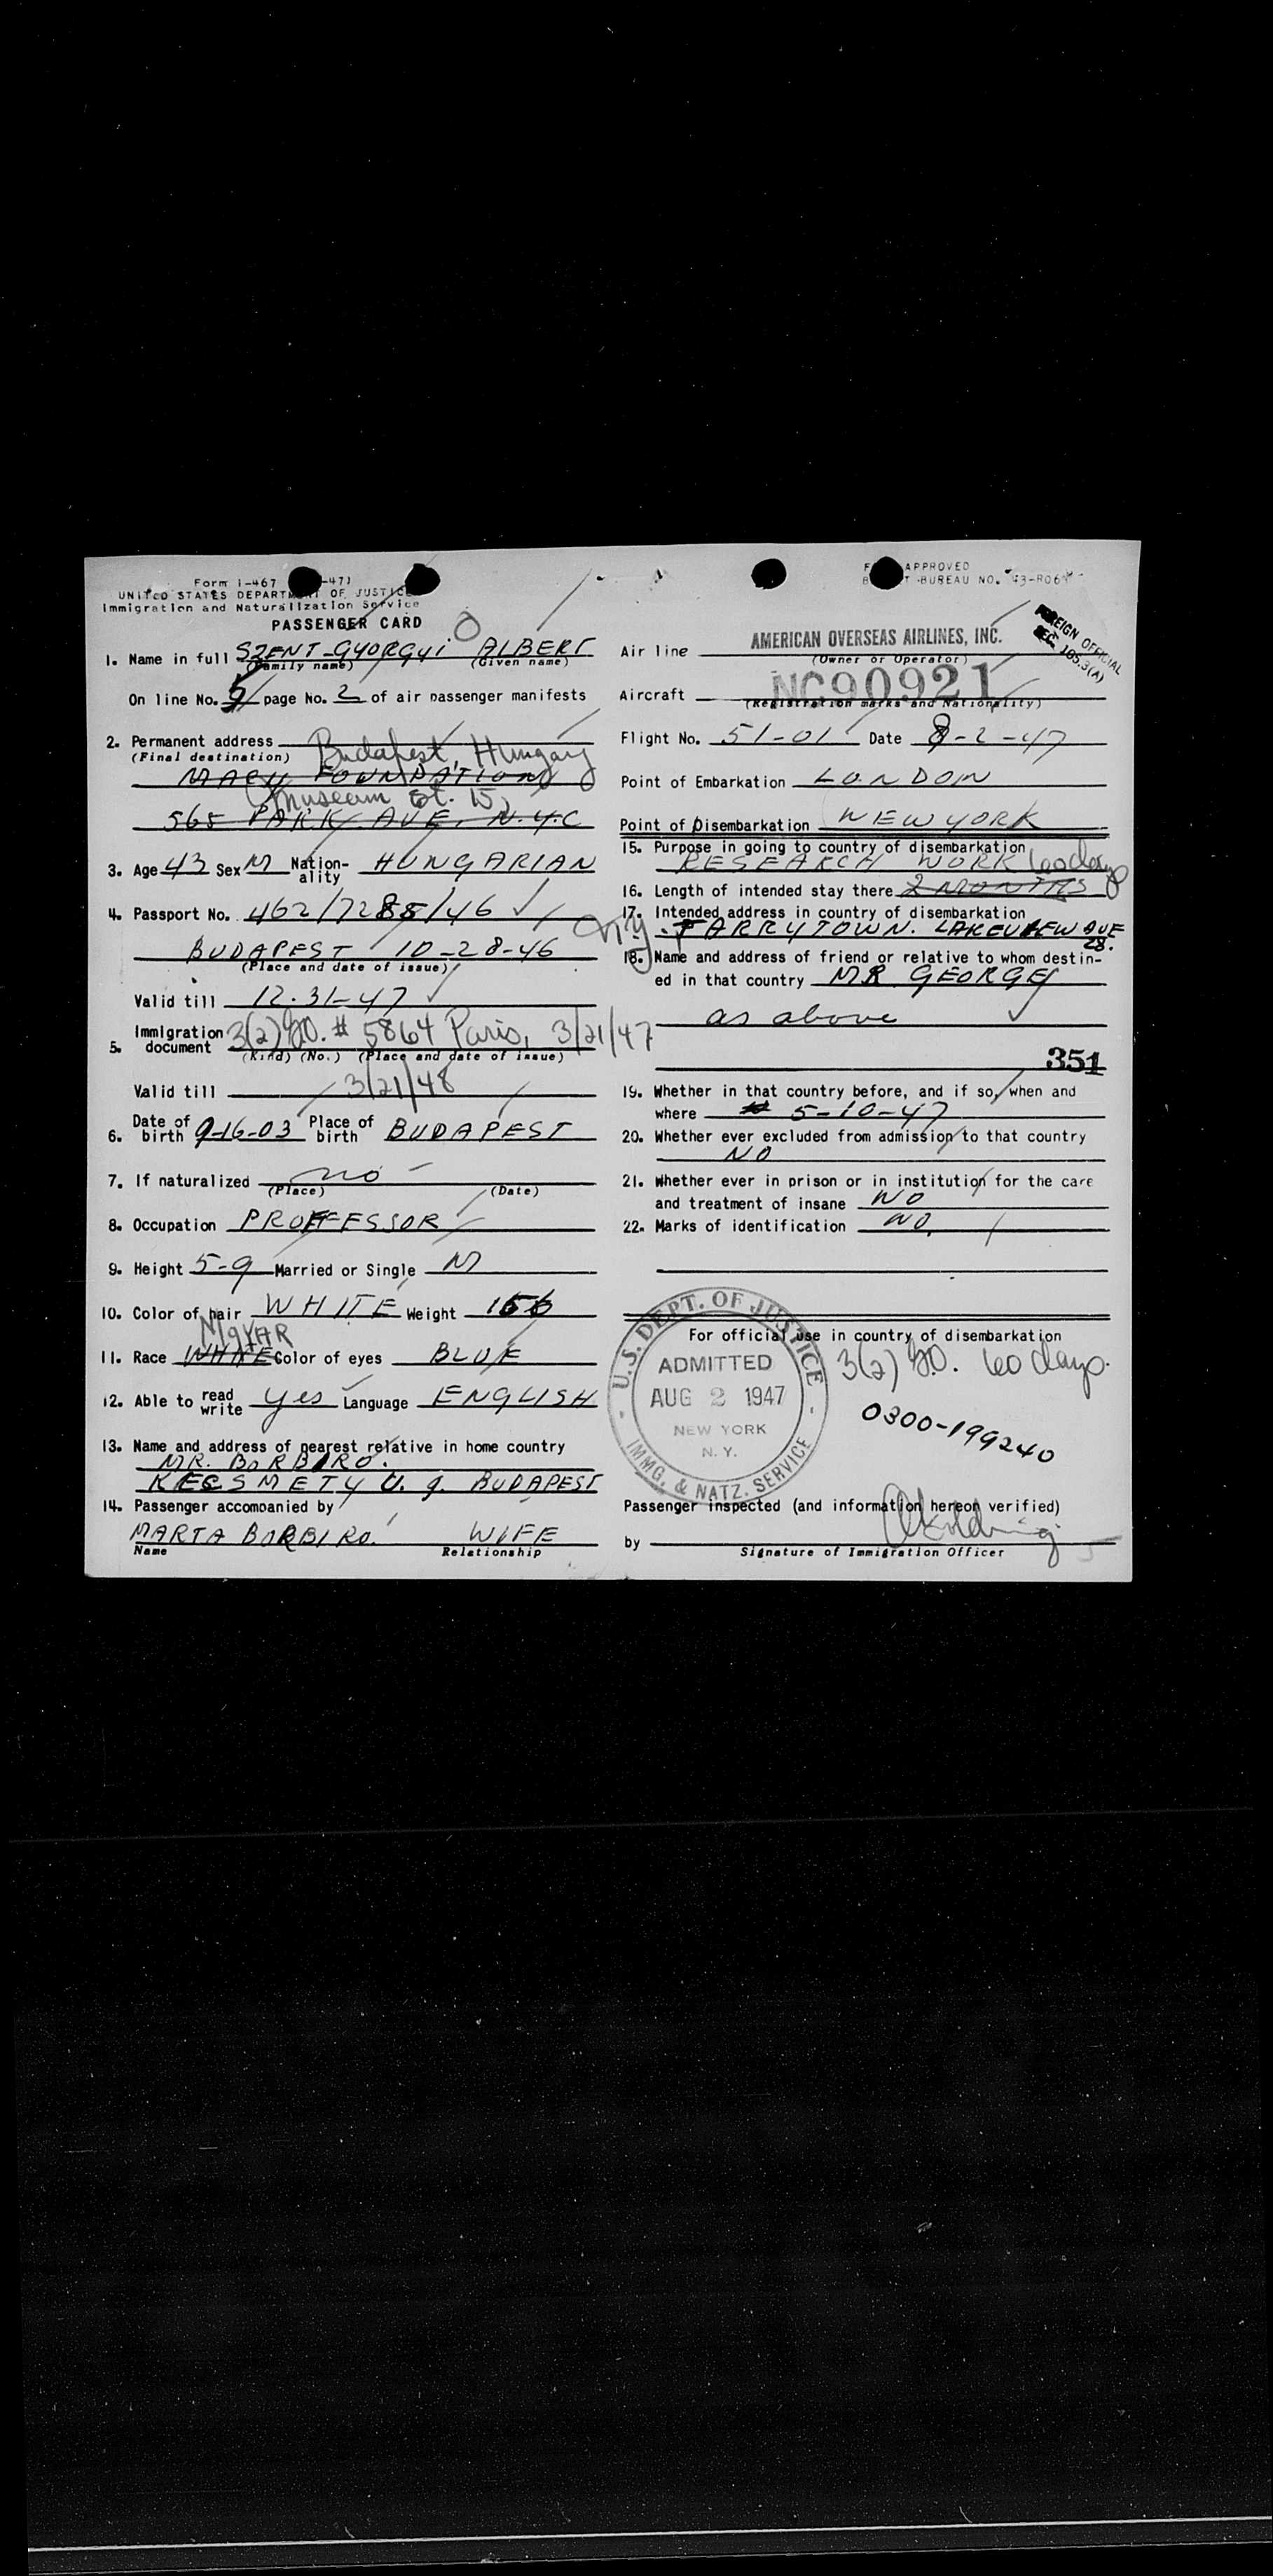 Form I-467
UNITED STATES DEPARTMENT OF JUSTICE
Immigration and Naturalization Service
PASSENGER CARD
1. Name in full SZENT-GYORGYI ALBERT
(Family name) (Given name)
On line No. 5 page No. 2 of air passenger manifests
2. Permanent address Budapest, Hungary
(Final destination)
MACY FOUNDATION
Museum St. 15
565 PARK AVE, N.Y.C
3. Age 43 Sex M Nationality HUNGARIAN
4. Passport No. 462/7288/46
BUDAPEST 10-28-46
(Place and date of issue)
Valid till 12-31-47
5. Immigration document 3(2) # 5864 Paris, 3/21/47
(Kind) (No.) (Place and date of issue)
Valid till 3/21/48
6. Date of birth 9-16-03 Place of birth BUDAPEST
7. If naturalized no
(Place) (Date)
8. Occupation PROFFESSOR
9. Height 5-9 Married or Single M
10. Color of hair WHITE Weight 156
MGYAR
11. Race WHITE Color of eyes BLUE
12. Able to read write yes Language ENGLISH
13. Name and address of nearest relative in home country
MR. BORBIRO.
KECSMETY U. 9. BUDAPEST
14. Passenger accompanied by
MARTA BORBIRO. WIFE
Name Relationship
APPROVED
BUREAU NO.
FOREIGN OFFICIAL
SEC. 105.3(A)
Air line AMERICAN OVERSEAS AIRLINES, INC.
(Owner or Operator)
Aircraft NC90921
(Registration marks and Nationality)
Flight No. 51-01 Date 8-2-47
Point of Embarkation LONDON
Point of Disembarkation NEW YORK
15. Purpose in going to country of disembarkation
RESEARCH WORK 60 days
16. Length of intended stay there 2 MONTHS
17. Intended address in country of disembarkation
N.Y. TARRYTOWN. LAKEVIEW AVE
28.
18. Name and address of friend or relative to whom destined in that country MR GEORGE
as above
351
19. Whether in that country before, and if so, when and
where 5-10-47
20. Whether ever excluded from admission to that country
NO
21. Whether ever in prison or in institution for the care
and treatment of insane NO
22. Marks of identification NO.
For official use in country of disembarkation
U.S. DEPT. OF JUSTICE
ADMITTED
AUG 2 1947
NEW YORK
N. Y.
IMMG. & NATZ. SERVICE
3(2) 60 days.
0300-199240
Passenger inspected (and information hereon verified)
by
Signature of Immigration Officer